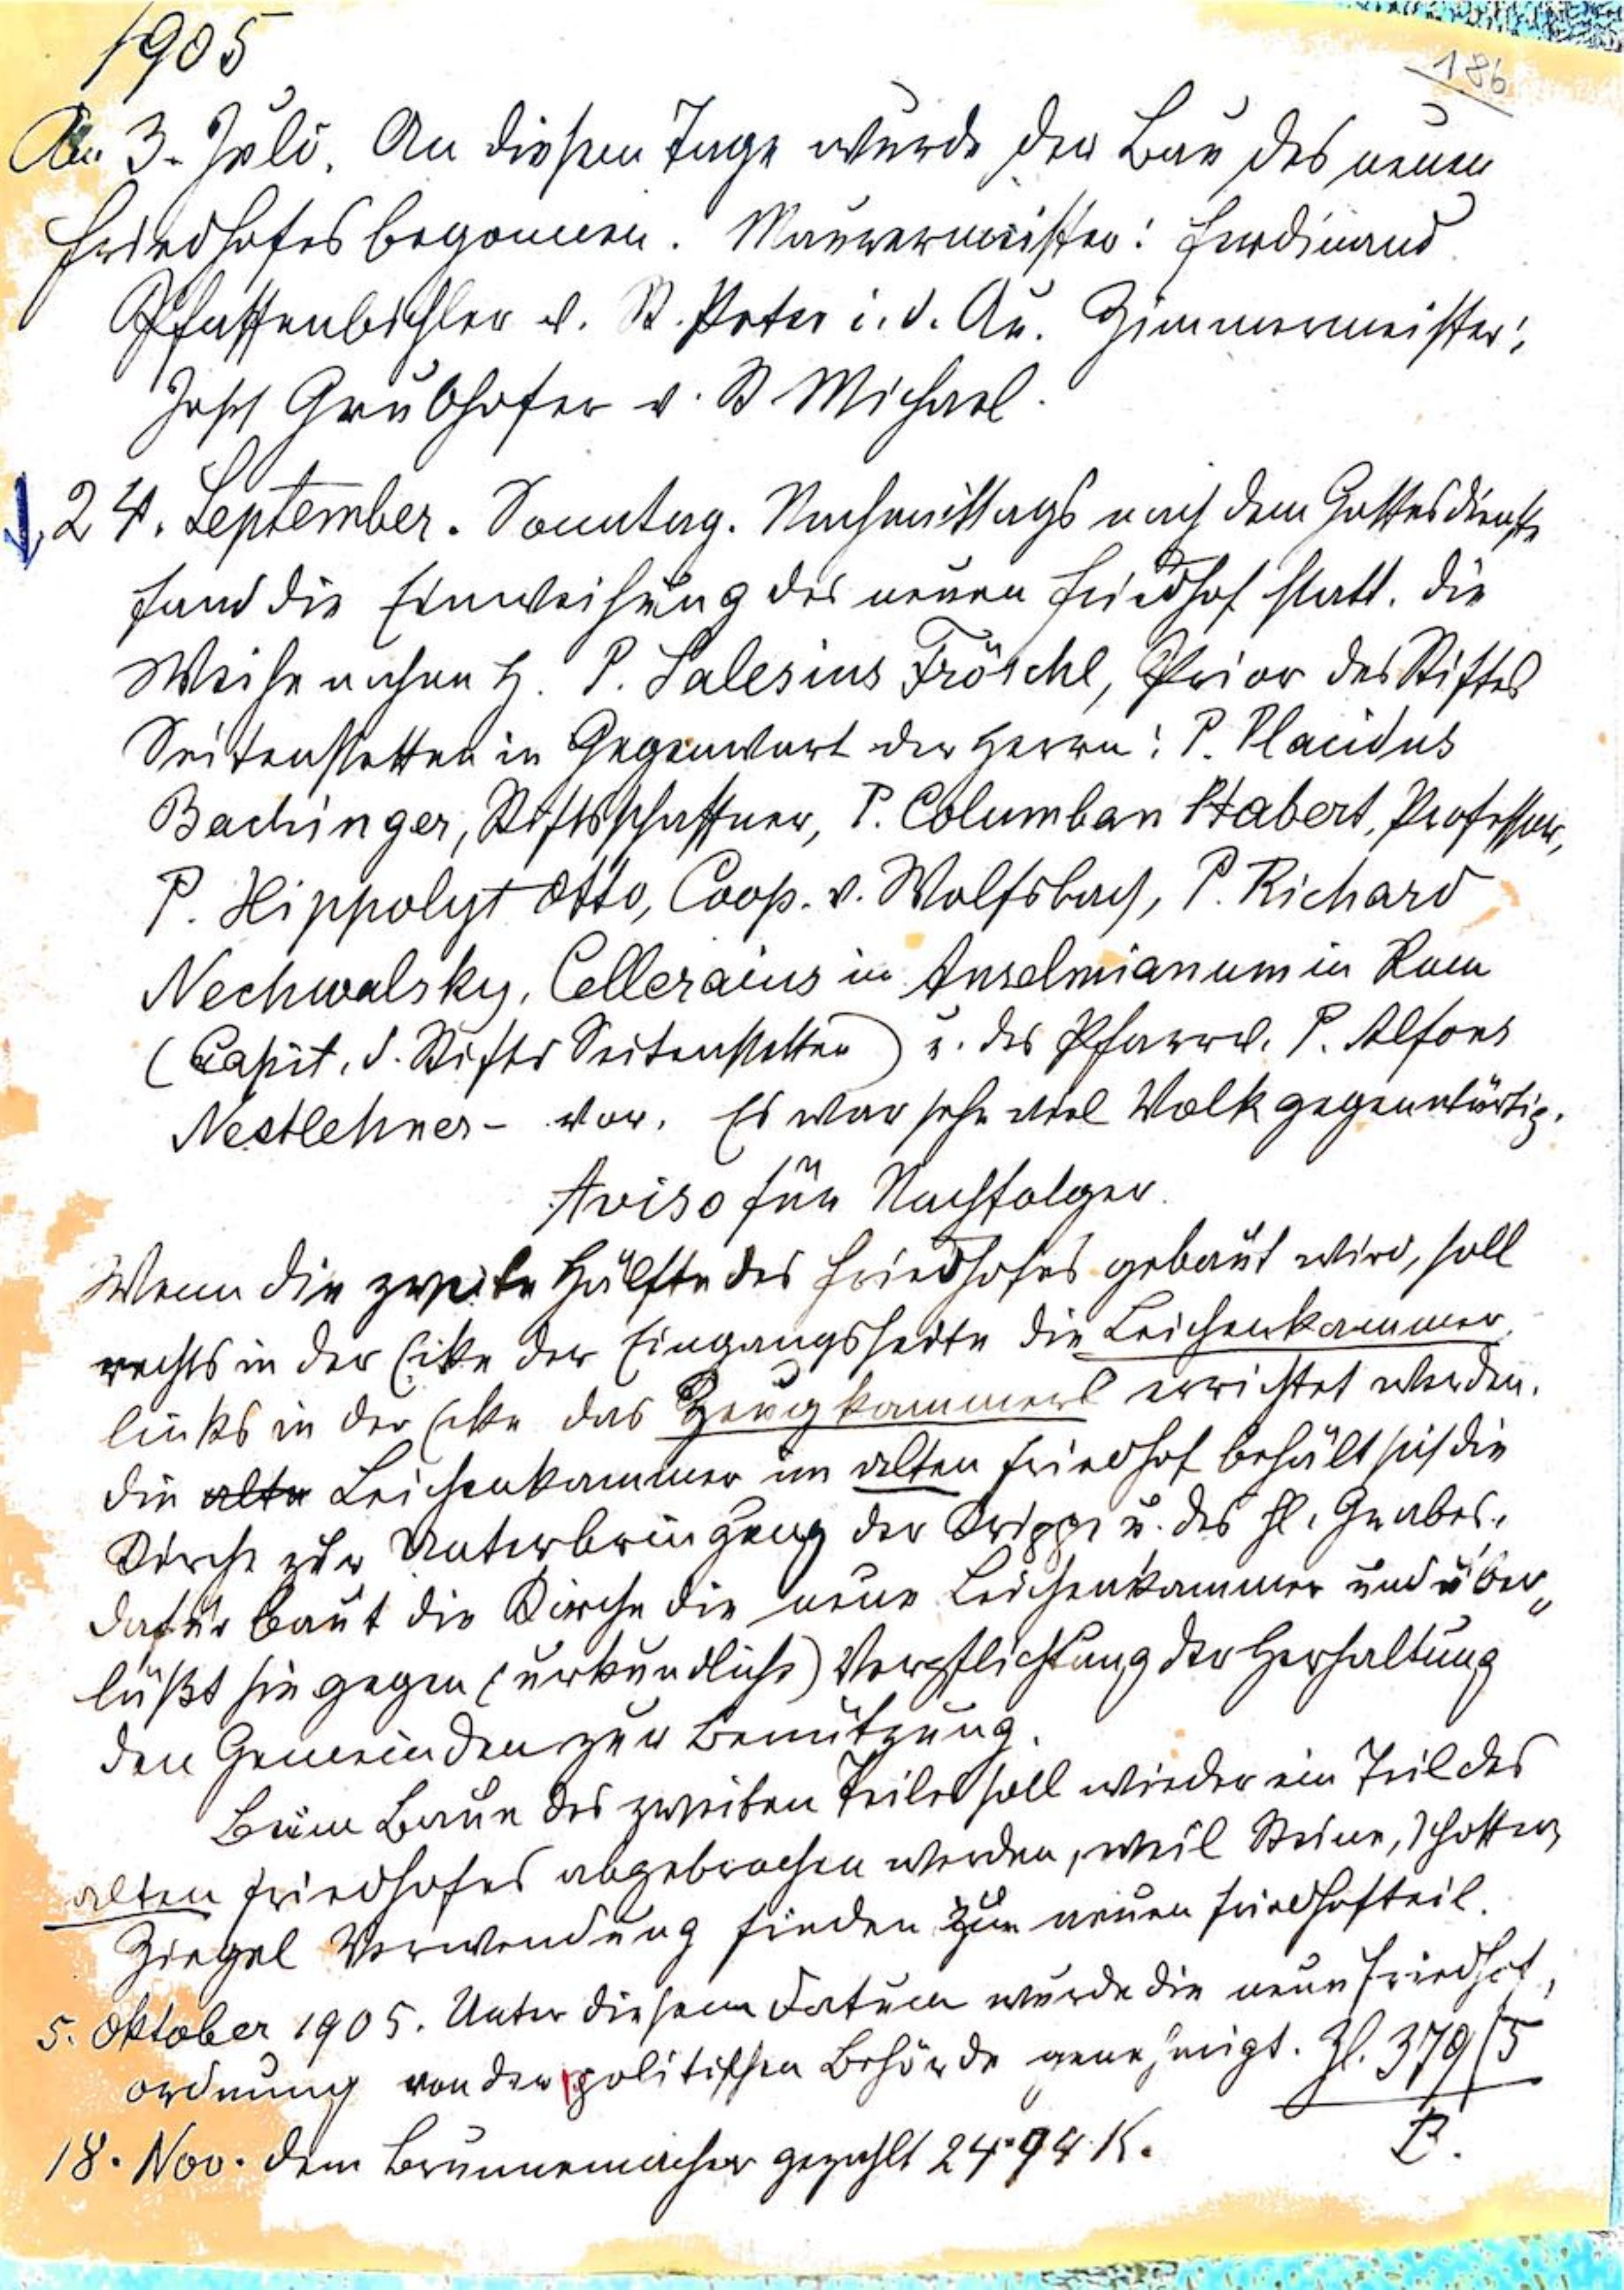 1905
186
Am 3. Juli. An diesem Tage wurde der Bau des neuen
Friedhofes begonnen. Maurermeister: Ferdinand
Pfaffenbichler v. St. Peter i. d. Au. Zimmermeister:
Josef Grubhofer v. St Michael.
24. September. Sonntag. Nachmittags nach dem Gottesdienste
fand die Einweihung des neuen Friedhof statt. Die
Weihe nahm H. P. Salesius Fröschl, Prior des Stiftes
Seitenstetten in Gegenwart der Herrn: P. Placidus
Bachinger, Stiftsschaffner, P. Columban Habert, Professor,
P. Hippolyt Otto, Coop. v. Wolfsbach, P. Richard
Nechwalsky, Celleraius in Anselmianum in Rom
(Capit. d. Stiftes Seitenstetten) u. des Pfarrv. P. Alfons
Nestlehner - vor. Es war sehr viel Volk gegenwärtig.
Aviso für Nachfolger.
Wenn die zweite Hälfte des Friedhofes gebaut wird, soll
rechts in der Ecke der Eingangsseite die Leichenkammer,
links in der Ecke das Zeugkammerl errichtet werden.
Die alte Leichenkammer im alten Friedhof behält sich die
Kirche zur Unterbringung der Krippe u. des hl. Grabes.
Dafür baut die Kirche die neue Leichenkammer und über„
läßt sie gegen (urkundliche) Verpflichtung der Herhaltung
den Gemeinden zur Benützung.
Beim Baue des zweiten Teiles soll wieder ein Teil des
alten Friedhofes abgebrochen werden, weil Steine, Schotter,
Ziegel Verwendung finden zum neuen Friedhofteil.
5. Oktober 1905. Unter diesem Datum wurde die neue Friedhof,
ordnung von der politischen Behörde genehmigt. Zl. 379/5
P.
18. Nov. dem Brunnenmacher gezahlt 24·94 K.